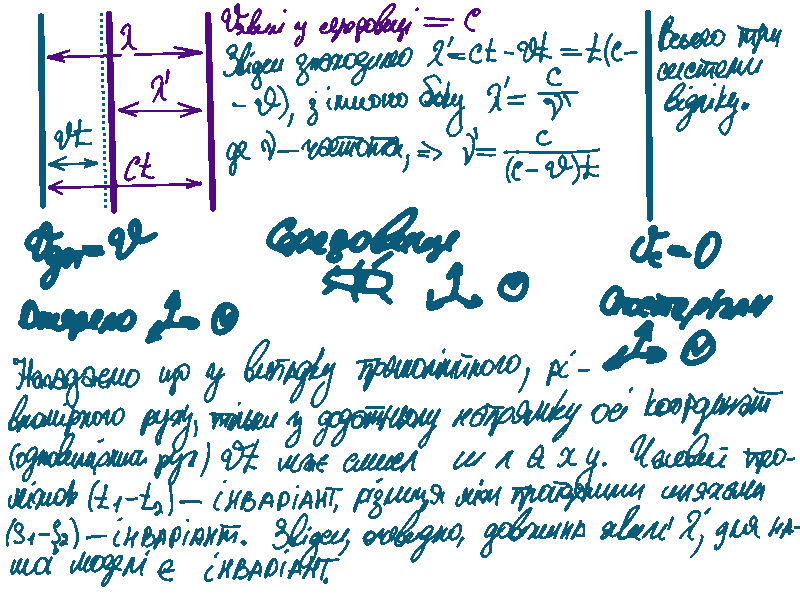 Vхвилі у середовищі = c
Звідси знаходимо λ' = ct - vt = t(c -
- v), з іншого боку λ' = c/ν'
де ν - частота, => ν' = c/((c - v)t)
Всього три
системи
відліку.
λ
λ'
vt
ct
Vдж = v
Середовище
Vс = 0
Джерело
Спостерігач
Нагадаємо що у випадку прямолінійного, рі-
вномірного руху, тільки у додатньому напрямку осі координат
(одновимірний рух) vt має смисл шляху. Часовий про-
міжок (t1-t2) - інваріант, різниця між пройденими шляхами
(S1-S2) - інваріант. Звідси, очевидно, довжина хвилі λ', для на-
шої моделі є інваріант.